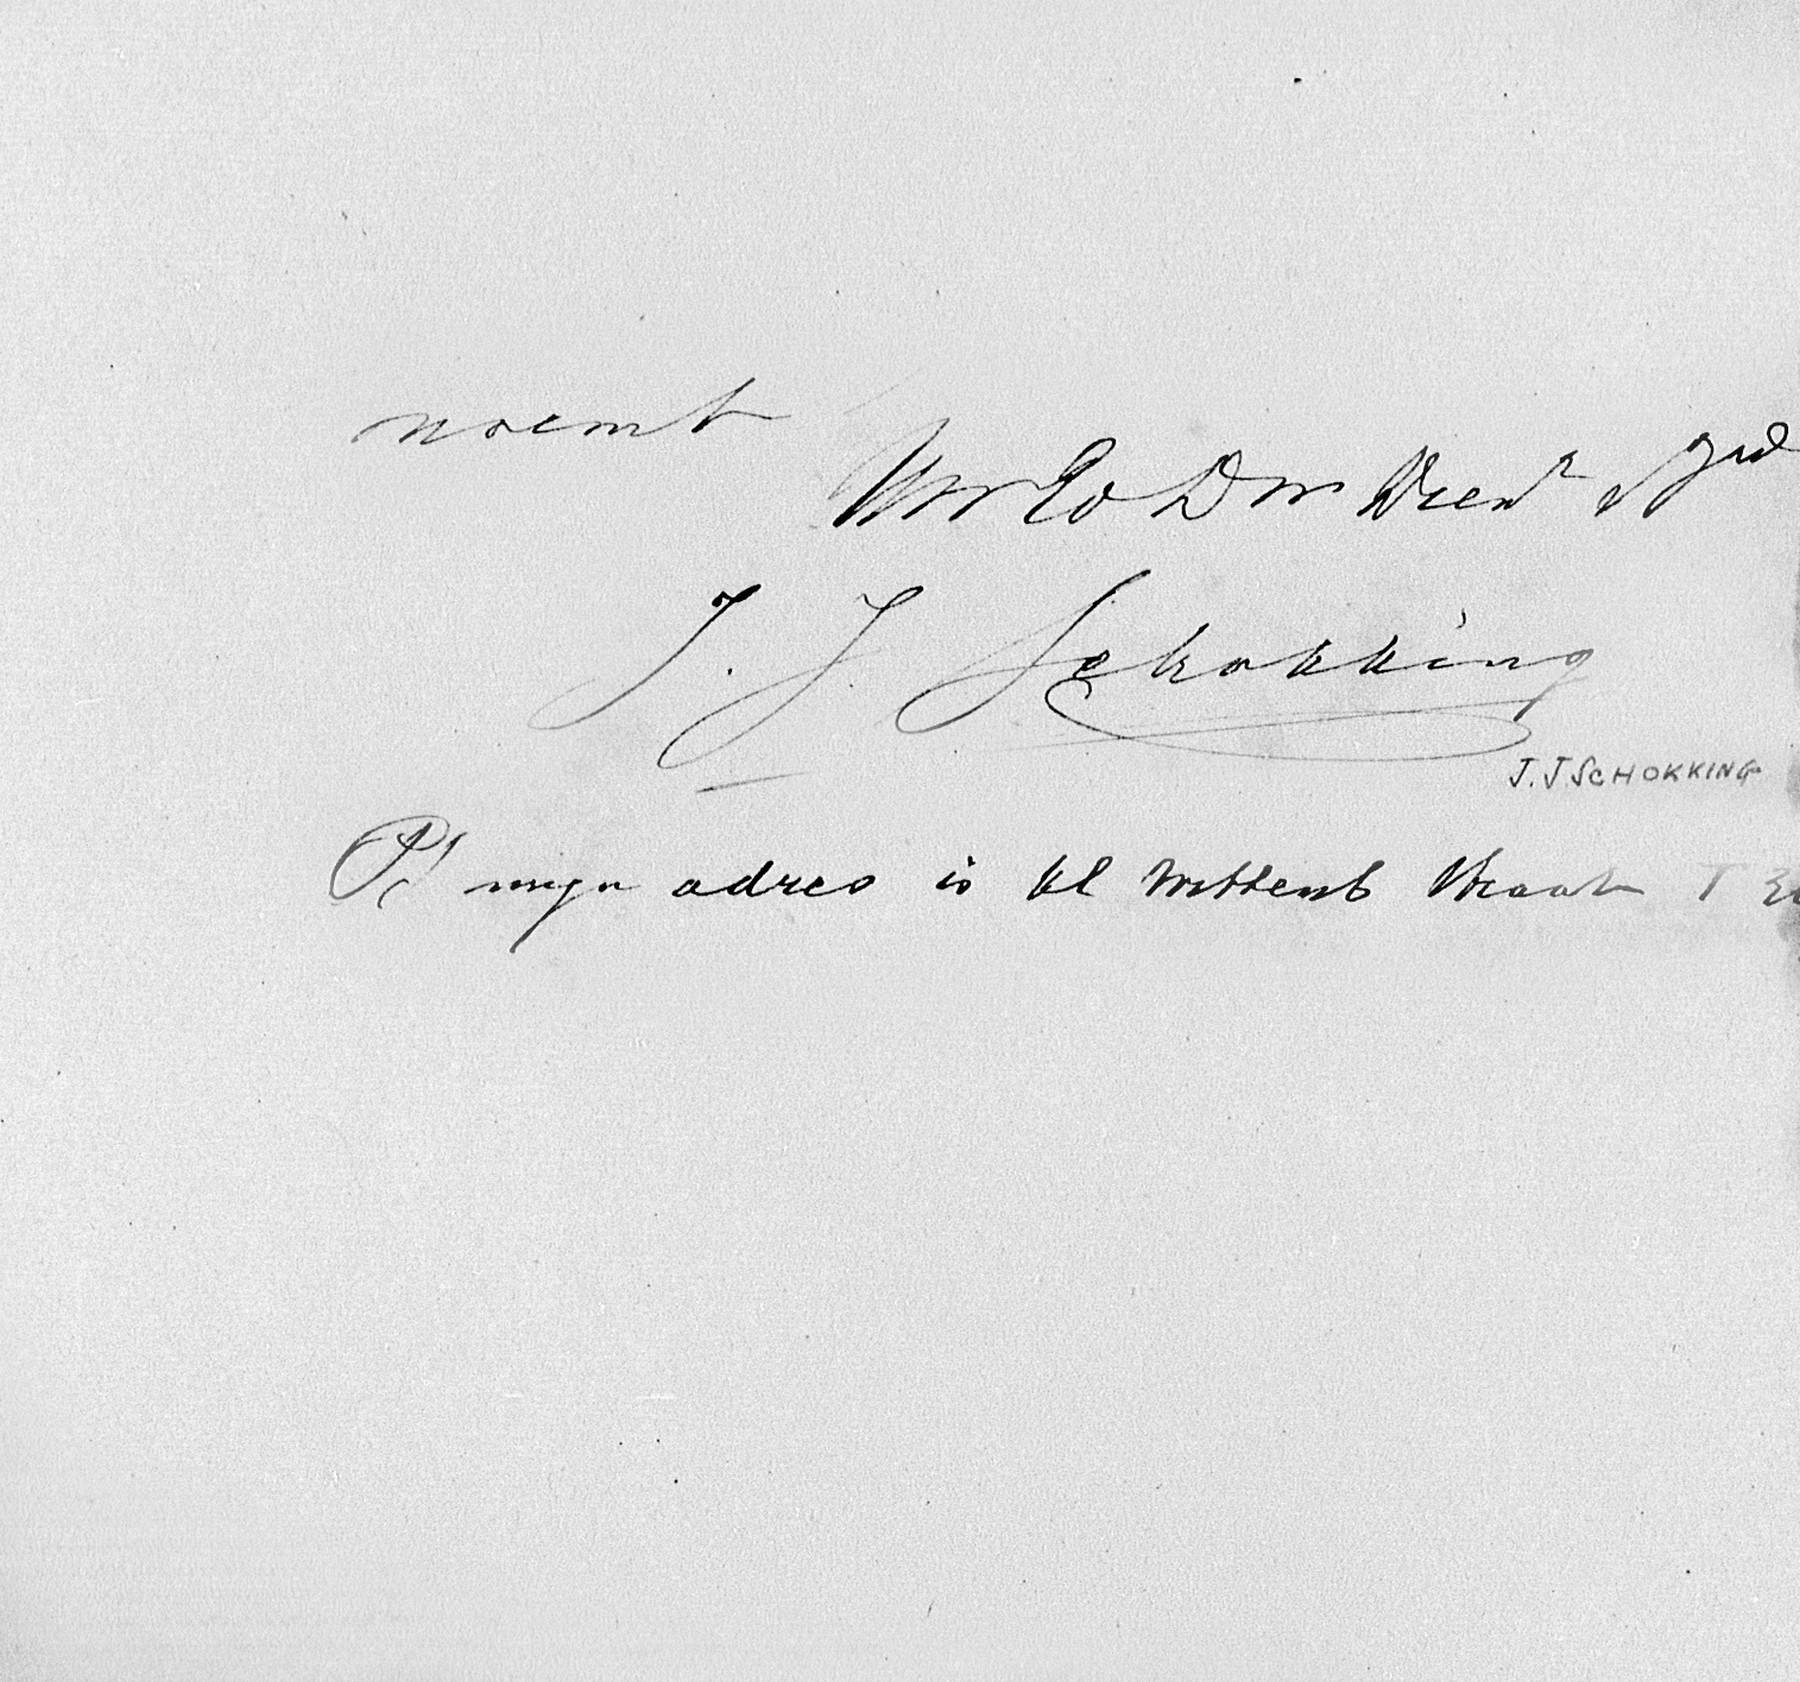 noemt
UwEd Dw Dien^r
J. J. Schokking
J. J SCHOKKING
PS mijn adres is kl Wittenb straat